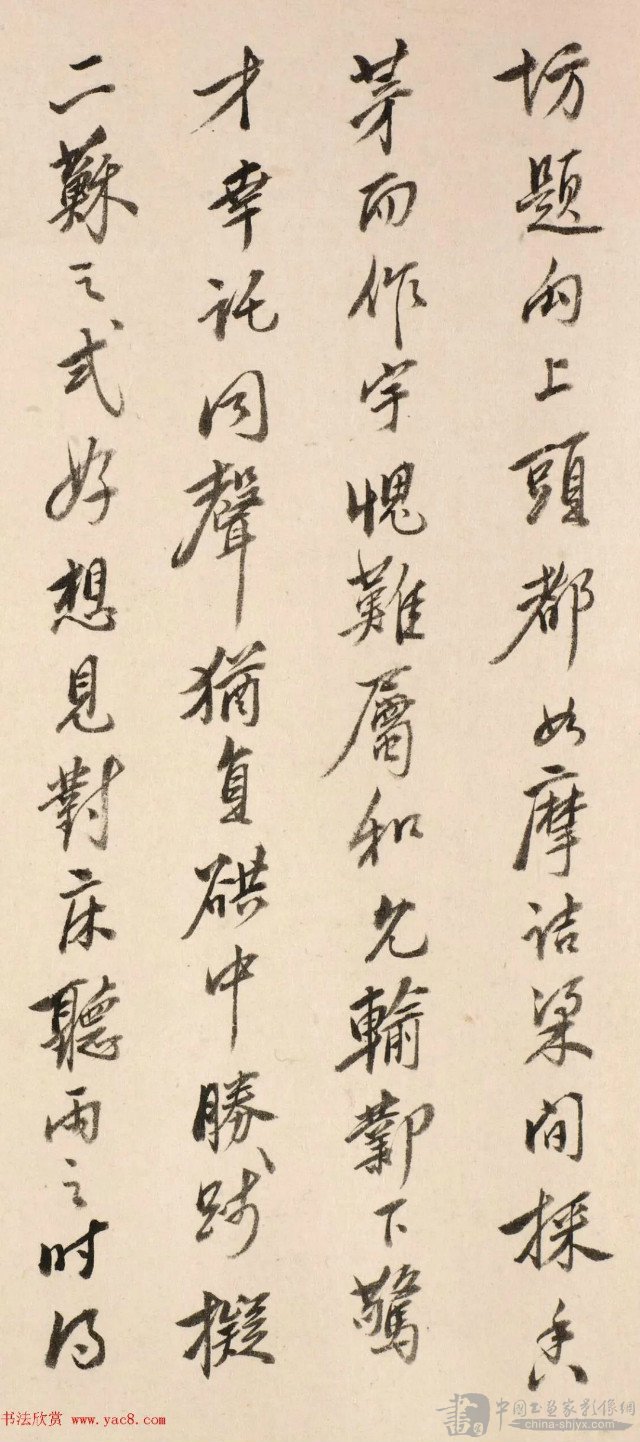 坊題向上頭都如摩詰梁間採香
芽而作字愧難屬和允輸鄴下驚
才幸託同聲猶復硔中勝踐擬
二蘇之式好想見對床聽雨之時得
书法欣赏 www.yac8.com
書 中國书画家影像網
china-shjyx.com